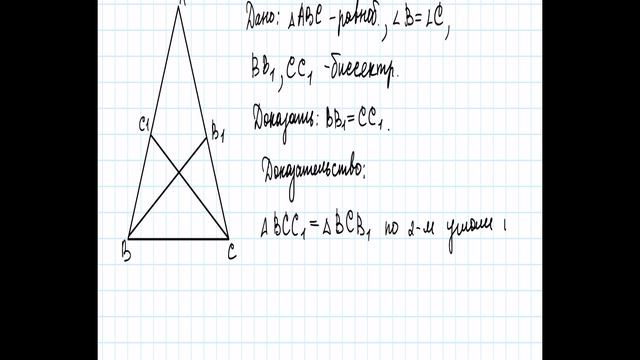 Дано: △ABC - равноб., ∠B=∠C,
BB₁, CC₁ - биссектр.
Доказать: BB₁=CC₁.
Доказательство:
△BCC₁=△BCB₁ по 2-м углам
C₁
B₁
B
C